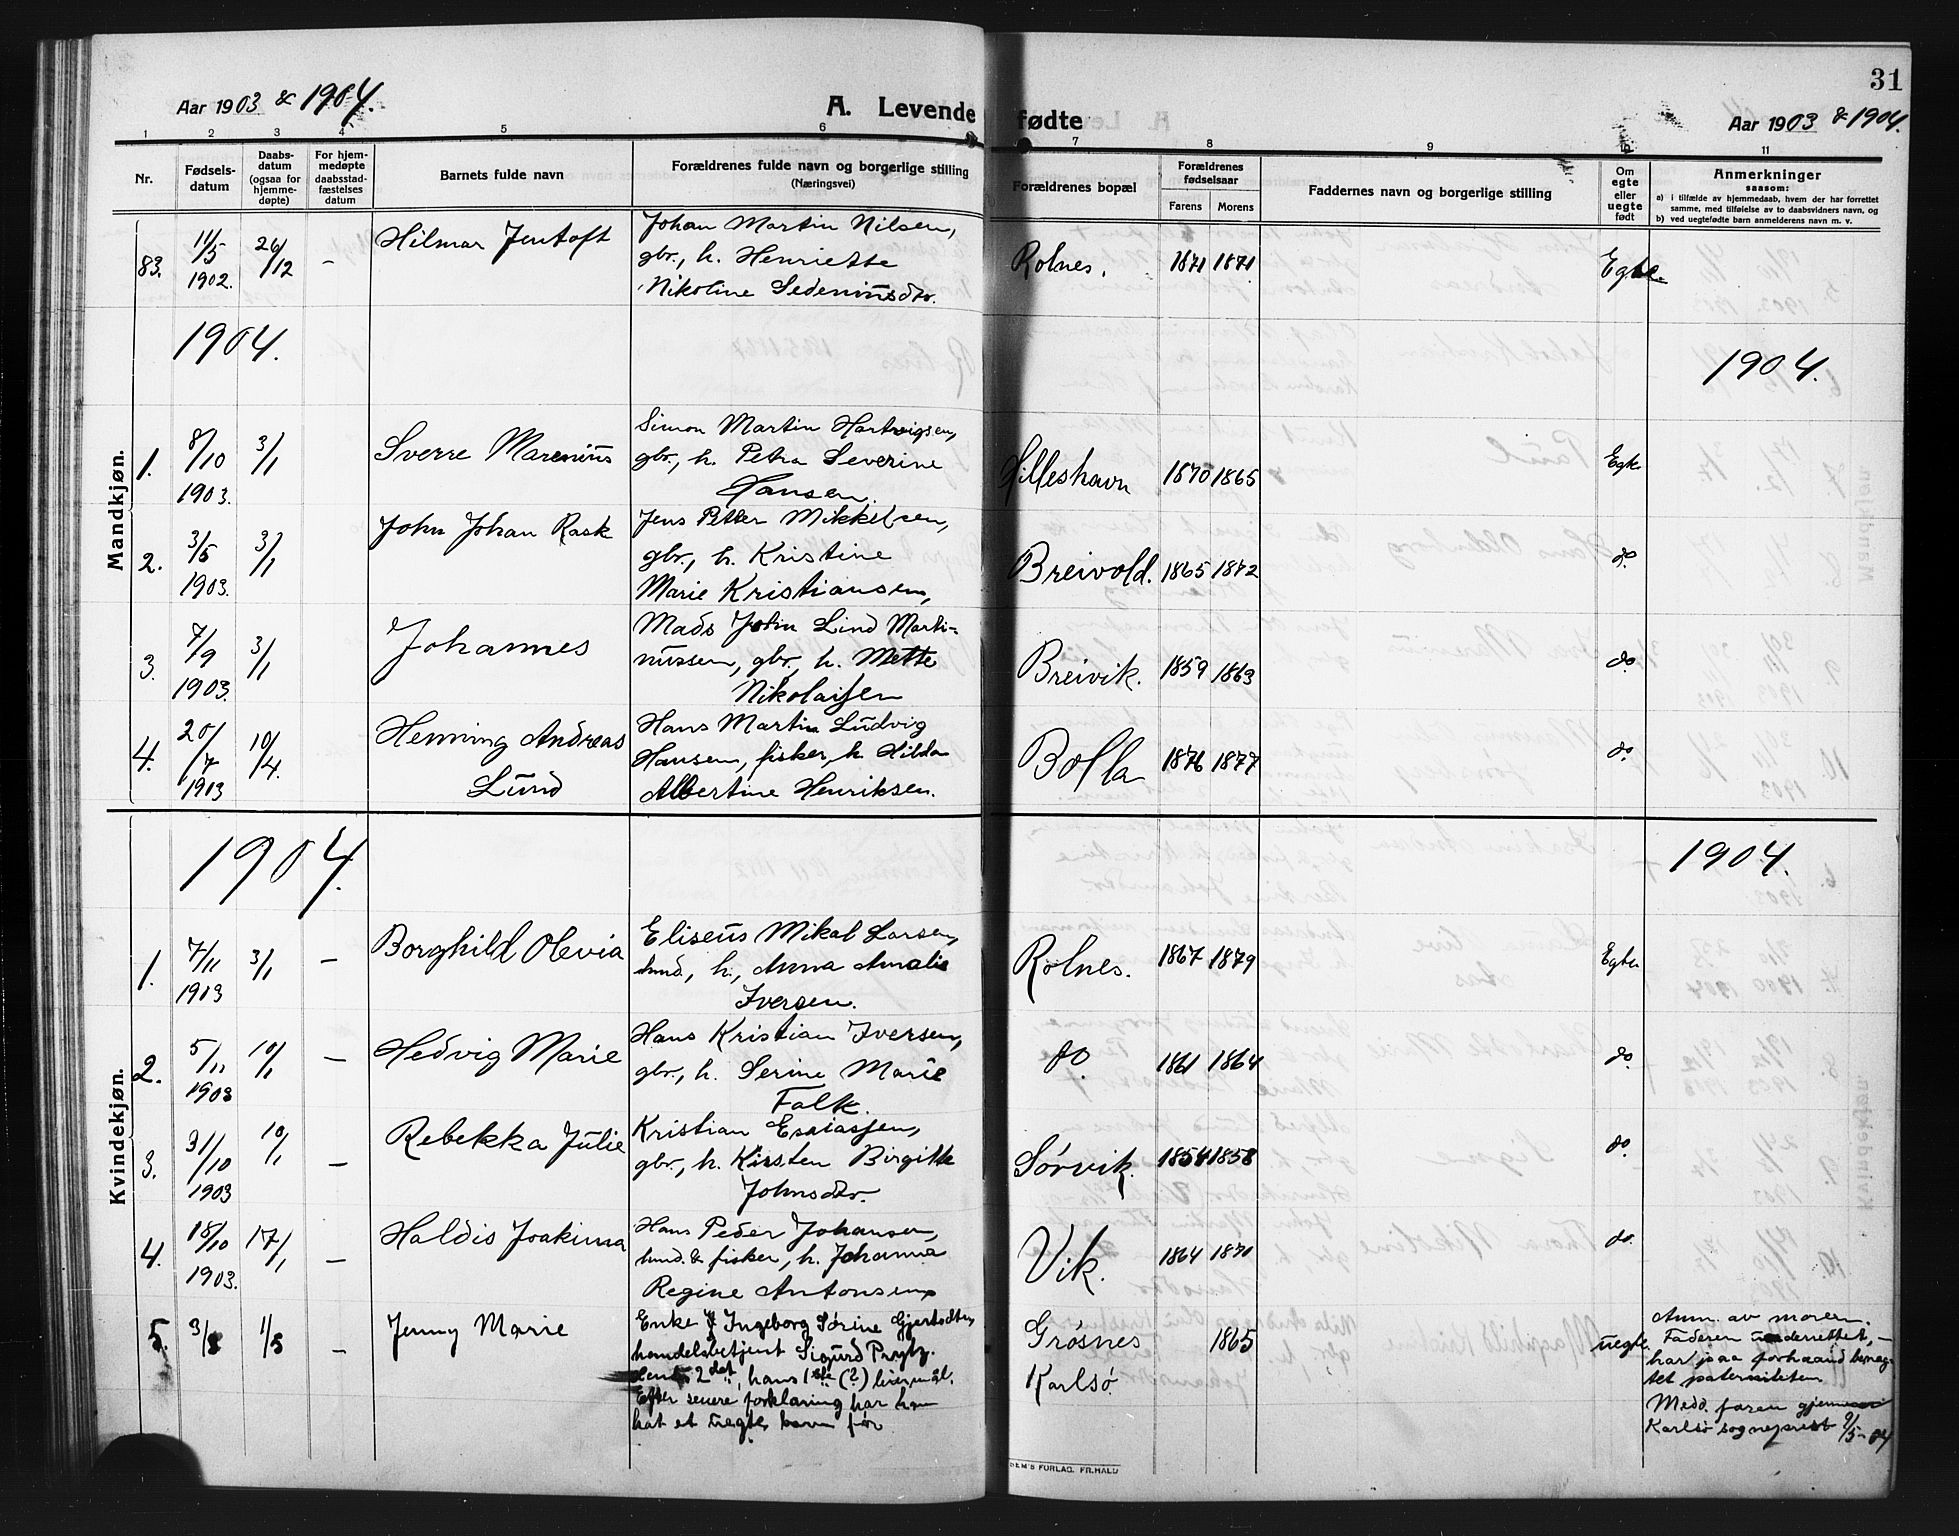 31
Aar 1903 & 1904.
A. Levende fødte
Aar 1903 & 1904.
1 2 3 4 5 6 7 8 9 10 11
Nr.
Fødsels-
datum
Daabs-
datum
(ogsaa for
hjemme-
døpte)
For hjem-
medøpte
daabsstad-
fæstelses
datum
Barnets fulde navn
Forældrenes fulde navn og borgerlige stilling
(Næringsvei)
Forældrenes bopæl
Forældrenes
fødselsaar
Farens Morens
Faddernes navn og borgerlige stilling
Om
egte
eller
uegte
født
Anmerkninger
saasom:
a) i tilfælde av hjemmedaab, hvem der har forrettet
samme, med tilføielse av to daabsvidners navn, og
b) ved uegtefødte barn anmelderens navn m. v.
83. 11/5 1902. 26/12 –
Hilmar Jentoft
Johan Martin Nilsen,
gbr., h. Henriette
Nikoline Sedeniusdtr.
Rolnes. 1871 1871. Egte.
1904.
1904.
Mandkjøn.
1. 8/10 1903. 3/1
Sverre Marenius
Simon Martin Hartvigsen,
gbr., h. Petra Severine
Hansen.
Hilleshavn 1870 1865 Egte
2. 3/5 1903. 3/1
John Johan Rask
Jens Petter Mikkelsen,
gbr., h. Kristine
Marie Kristiansen,
Breivold. 1865 1872 do.
3. 7/9 1903. 3/1
Johannes
Mads John Lind Marti-
nussen, gbr., h. Mette
Nikolaisen
Breivik. 1859 1863 do.
4. 20/7 1903 10/4.
Henning Andreas
Lund
Hans Martin Ludvig
Hansen, fisker, h. Hilda
Albertine Henriksen.
Bolla 1876 1877 do.
1904.
1904.
Kvindekjøn.
1. 7/11 1903 3/1 –
Borghild Olevia
Eliseus Mikal Larsen,
hmd., h., Anna Amalie
Iversen.
Rolnes. 1867 1879 Egte.
2. 5/11 1903 10/1 –
Hedvig Marie
Hans Kristian Iversen,
gbr., h. Serine Marie
Falk.
do. 1861 1864 do.
3. 31/10 1903 10/1 –
Rebekka Julie
Kristian Esaiassen,
gbr., h. Kirsten Birgitte
Johnsdtr.
Sørvik. 1854 1858 do.
4. 18/10 1903. 17/1 –
Haldis Joakima
Hans Peder Johansen,
hmd. & fisker, h. Johanna
Regine Antonsen
Vik. 1864 1870 do.
5. 1/3 –
Jenny Marie
Enke Ingeborg Sørine
handelsbetjent Sigurd Prytz.
2det, hans 1ste (?) leiermål.
Efter senere forklaring har han
hat et uegte barn før
Grøsnes
Karlsø.
1865 uegte.
Anm. av moren.
Faderen underrettet,
har paa forhaand benæg-
tet paterniteten
Medd. faren gjennem
Karlsø sogneprest 9/5-04
SEM'S FORLAG. FR.HALD